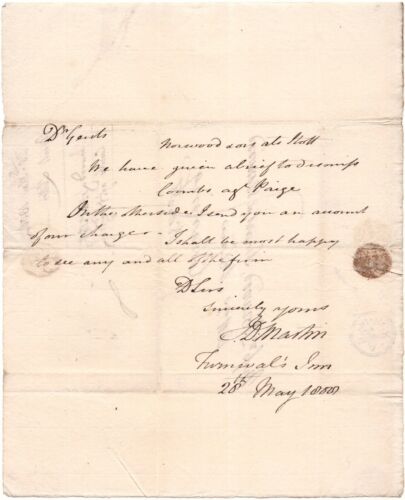 Dr Gents
Norwood & ors ats Stott
We have given a brief to
Coombs agt Paige
On the other side I send you an account
of our charges – I shall be most happy
to see any and all of the firm
D Sirs
Sincerely yours
Martin
Furnival's Inn
28th May 1808